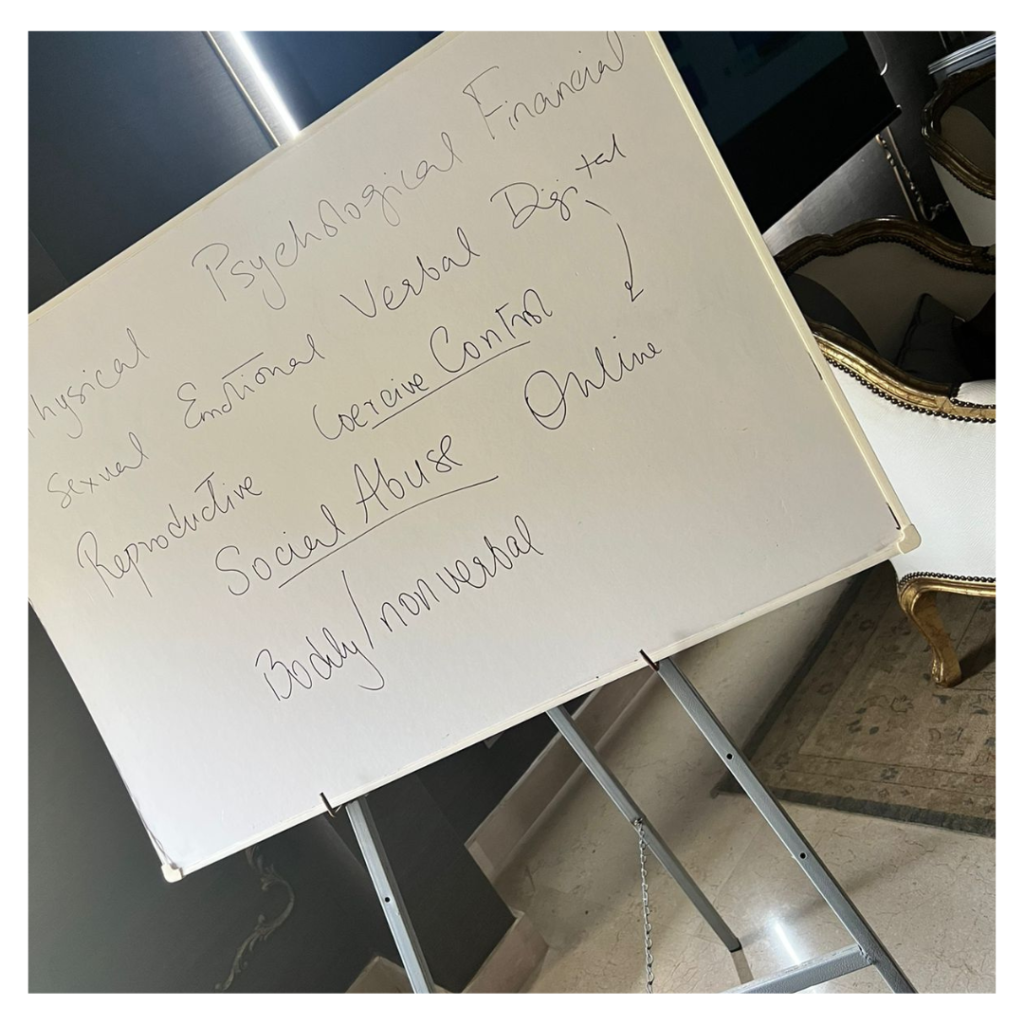 Physical Psychological Financial
Sexual Emotional Verbal Digital
Reproductive Coercive Control
Social Abuse Online
Bodily/nonverbal